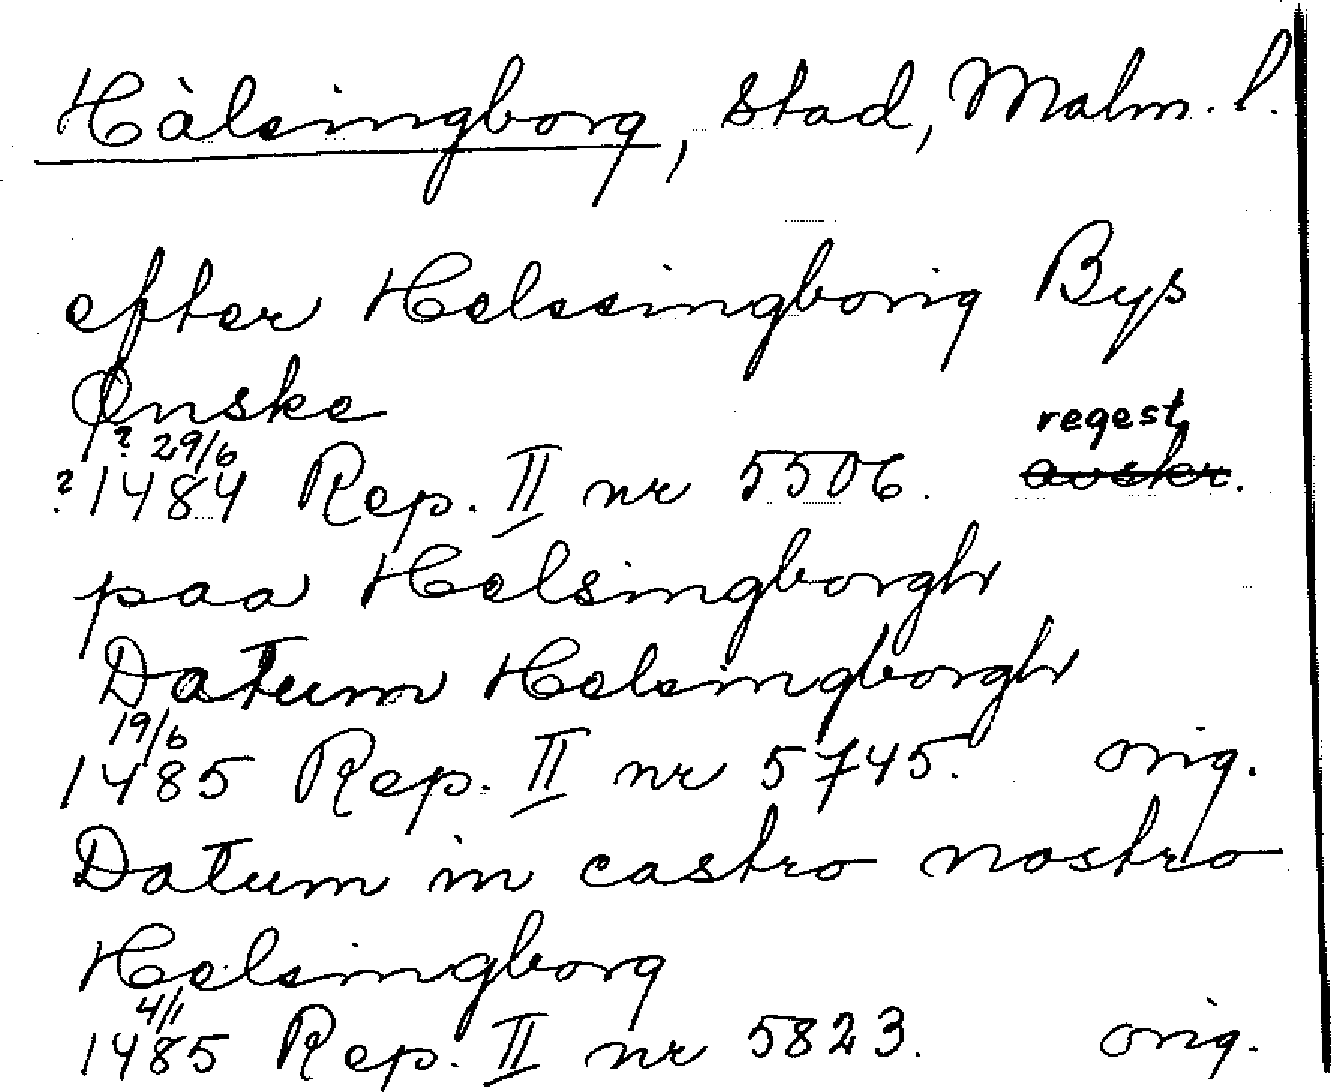 Hàlsingborg, stad, Malm. l.
efter Helssingborig Bys
Ønske
regest
? 29/6
? 1484 Rep. II nr 5506. avskr.
paa Helsingborgh
Datum Helsingborgh
19/6
1485 Rep. II nr 5745. orig.
Datum in castro nostro
Helsingborg
4/1
1485 Rep. II nr 5823. orig.